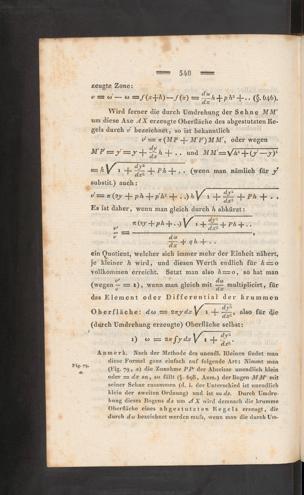 540
zeugte Zone:
v = ω' − ω = f(x+h)−f(x) = dω/dx h + p h² + . . (§. 646).
Wird ferner die durch Umdrehung der Sehne MM'
um diese Axe AX erzeugte Oberfläche des abgestutzten Ke-
gels durch v' bezeichnet, so ist bekanntlich
v' = π (MP + M'P') MM', oder wegen
M'P' = y' = y + dy/dx h + . . und MM' = √h² + (y' − y)²
= h √ 1 + dy²/dx² + Ph + . . (wenn man nämlich für y'
substit.) auch:
v' = π (2y + ph + p'h² + . .) h √ 1 + dy²/dx² + Ph + . .
Es ist daher, wenn man gleich durch h abkürzt:
v'/v = π (2y + ph + . .) √ 1 + dy²/dx² + Ph + . . / dω/dx + qh + . . ,
ein Quotient, welcher sich immer mehr der Einheit nähert,
je kleiner h wird, und diesen Werth endlich für h = 0
vollkommen erreicht. Setzt man also h = 0, so hat man
(wegen v'/v = 1), wenn man gleich mit dω/dx multiplicirt, für
das Element oder Differential der krummen
Oberfläche: dω = 2πy dx √ 1 + dy²/dx², also für die
(durch Umdrehung erzeugte) Oberfläche selbst:
1) ω = 2π ∫ y dx √ 1 + dy²/dx².
Anmerk. Nach der Methode des unendl. Kleinen findet man
diese Formel ganz einfach auf folgende Art: Nimmt man
Fig. 79. a.
(Fig. 79, a) die Zunahme PP' der Abscisse unendlich klein
oder = dx an, so fällt (§. 698, Anm.) der Bogen MM' mit
seiner Sehne zusammen (d. i. der Unterschied ist unendlich
klein der zweiten Ordnung) und ist = ds. Durch Umdre-
hung dieses Bogens ds um AX wird demnach die krumme
Oberfläche eines abgestutzten Kegels erzeugt, die
durch dω bezeichnet werden muſs, wenn man die durch Um-